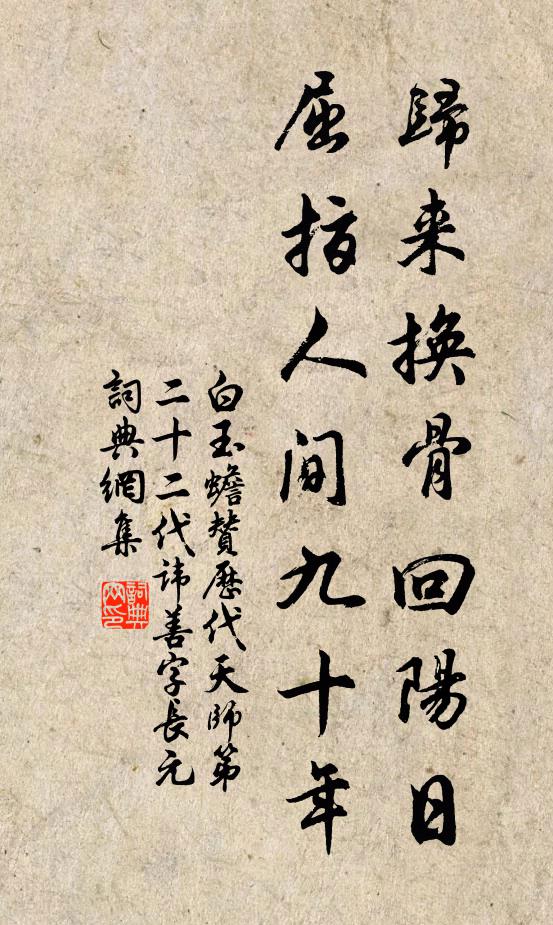 歸来換骨回陽日
屈指人间九十年
白玉蟾贊歷代天師第
二十二代諱善字長元
詞典網集
詞典网印